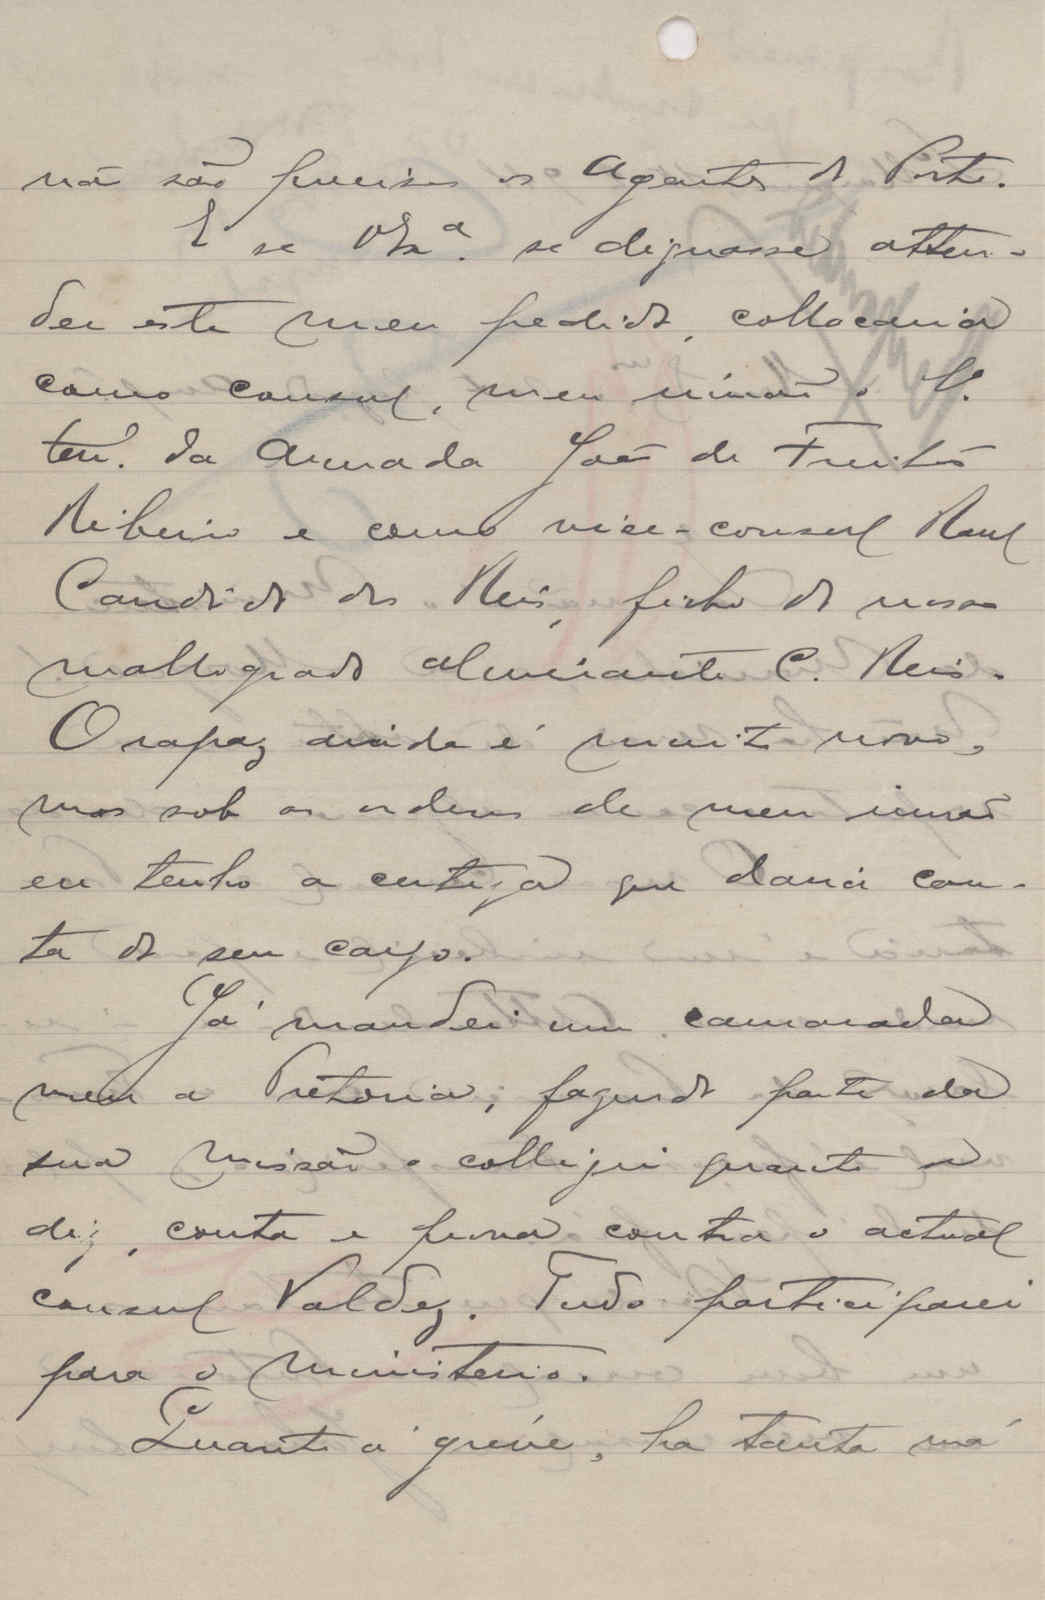 não são precisos os Agentes do Porto.
E se VExª. se dignasse atten-
der este meu pedido, collocaria
como consul, meu irmão o 1º.
ten. da Armada João de Freitas
Ribeiro e como vice-consul Raul
Candido dos Reis, filho do nosso
mallogrado almirante C. Reis.
O rapaz ainda é muito novo,
mas sob as ordens de meu irmão
eu tenho a certeza que dará con-
ta do seu cargo.
Já mandei um camarada
meu a Pretoria, fazendo parte da
sua missão o colligir quanto se
diz, conta e prova contra o actual
consul Valdez. Tudo participarei
para o ministerio.
Quanto á gréve, ha tanta má